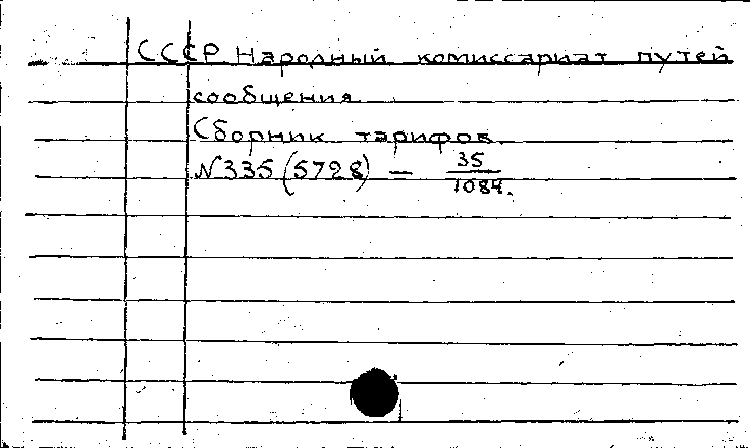 СССР Народный комиссариат путей
сообщения
Сборник тарифов.
№335 (5728) — 35/1084.